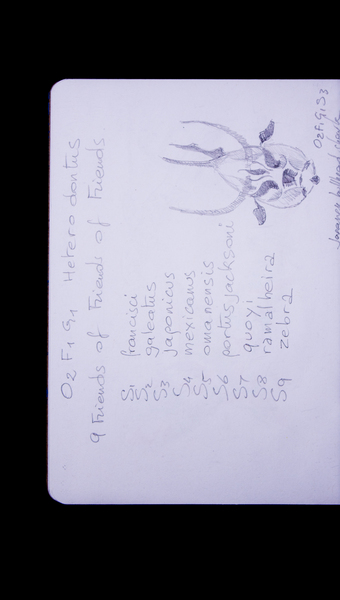 O2 F1 G1 Heterodontus
9 Friends of Friends of Friends
S1 francisci
S2 galeatus
S3 japonicus
S4 mexicanus
S5 omanensis
S6 portusjacksoni
S7 quoyi
S8 ramalheira
S9 zebra
O2F1G1S3
Japanese bullhead shark